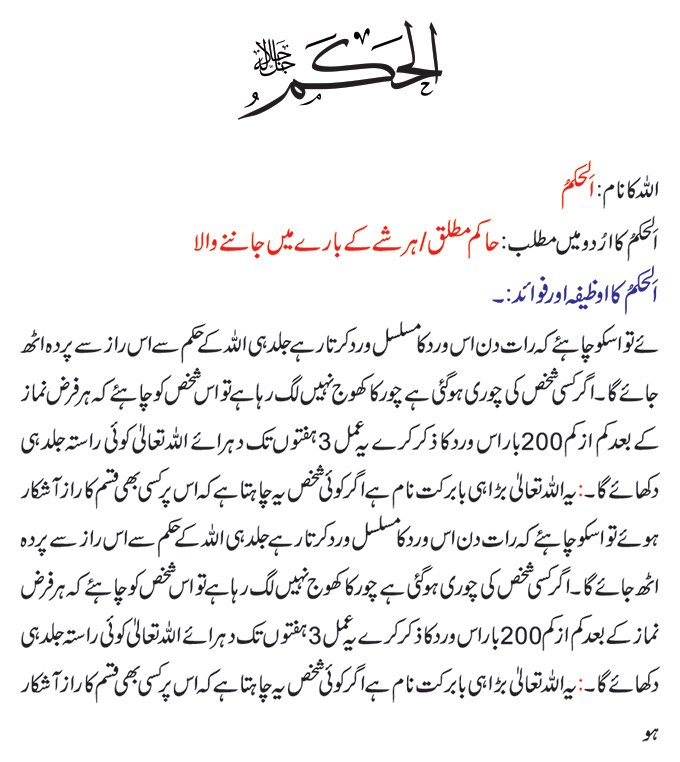 الحکم جل جلالہ
اللہ کا نام: اَلحَکمُ
اَلحَکمُ کا اردو میں مطلب: حاکم مطلق/ہر شے کے بارے میں جاننے والا
اَلحَکمُ کا وظیفہ اور فوائد:۔
ئے تو اسکو چاہئے کہ رات دن اس ورد کا مسلسل ورد کرتا رہے جلد ہی اللہ کے حکم سے اس راز سے پردہ اٹھ
جائے گا۔ اگر کسی شخص کی چوری ہوگئی ہے چور کا کھوج نہیں لگ رہا ہے تو اس شخص کو چاہئے کہ ہر فرض نماز
کے بعد کم از کم 200 بار اس ورد کا ذکر کرے یہ عمل 3 ہفتوں تک دہرائے اللہ تعالیٰ کوئی راستہ جلد ہی
دکھائے گا۔: یہ اللہ تعالیٰ بڑا ہی بابرکت نام ہے اگر کوئی شخص یہ چاہتا ہے کہ اس پر کسی بھی قسم کا راز آشکار
ہوئے تو اسکو چاہئے کہ رات دن اس ورد کا مسلسل ورد کرتا رہے جلد ہی اللہ کے حکم سے اس راز سے پردہ
اٹھ جائے گا۔ اگر کسی شخص کی چوری ہوگئی ہے چور کا کھوج نہیں لگ رہا ہے تو اس شخص کو چاہئے کہ ہر فرض
نماز کے بعد کم از کم 200 بار اس ورد کا ذکر کرے یہ عمل 3 ہفتوں تک دہرائے اللہ تعالیٰ کوئی راستہ جلد ہی
دکھائے گا۔: یہ اللہ تعالیٰ بڑا ہی بابرکت نام ہے اگر کوئی شخص یہ چاہتا ہے کہ اس پر کسی بھی قسم کا راز آشکار
ہو